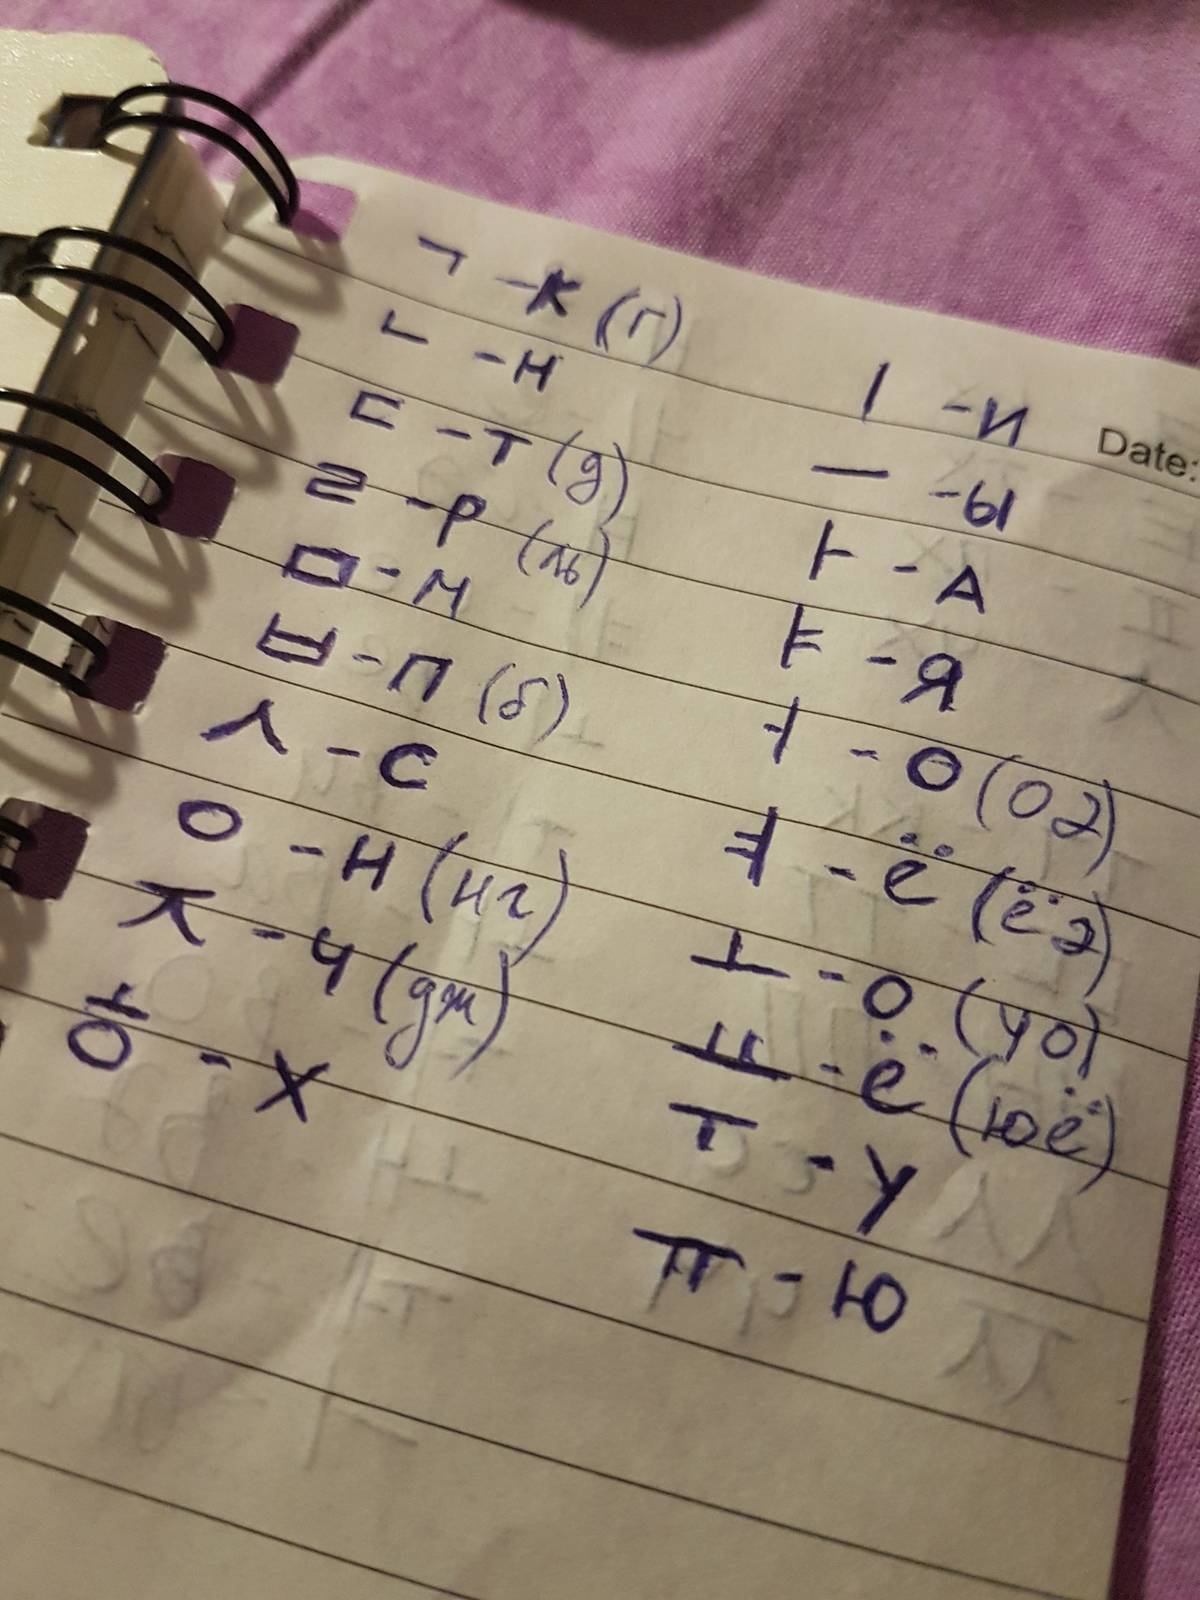 ㄱ - К (г)
ㄴ - Н
ㄷ - Т (д)
ㄹ - Р (ль)
ㅁ - М
ㅂ - П (б)
ㅅ - С
ㅇ - Н (нг)
ㅈ - Ч (дж)
ㅎ - Х
Date:
ㅣ - И
ㅡ - Ы
ㅏ - А
ㅑ - Я
ㅓ - О (ОЭ)
ㅕ - Ё (ёэ)
ㅗ - О (УО)
ㅛ - Ё (юё)
ㅜ - У
ㅠ - Ю